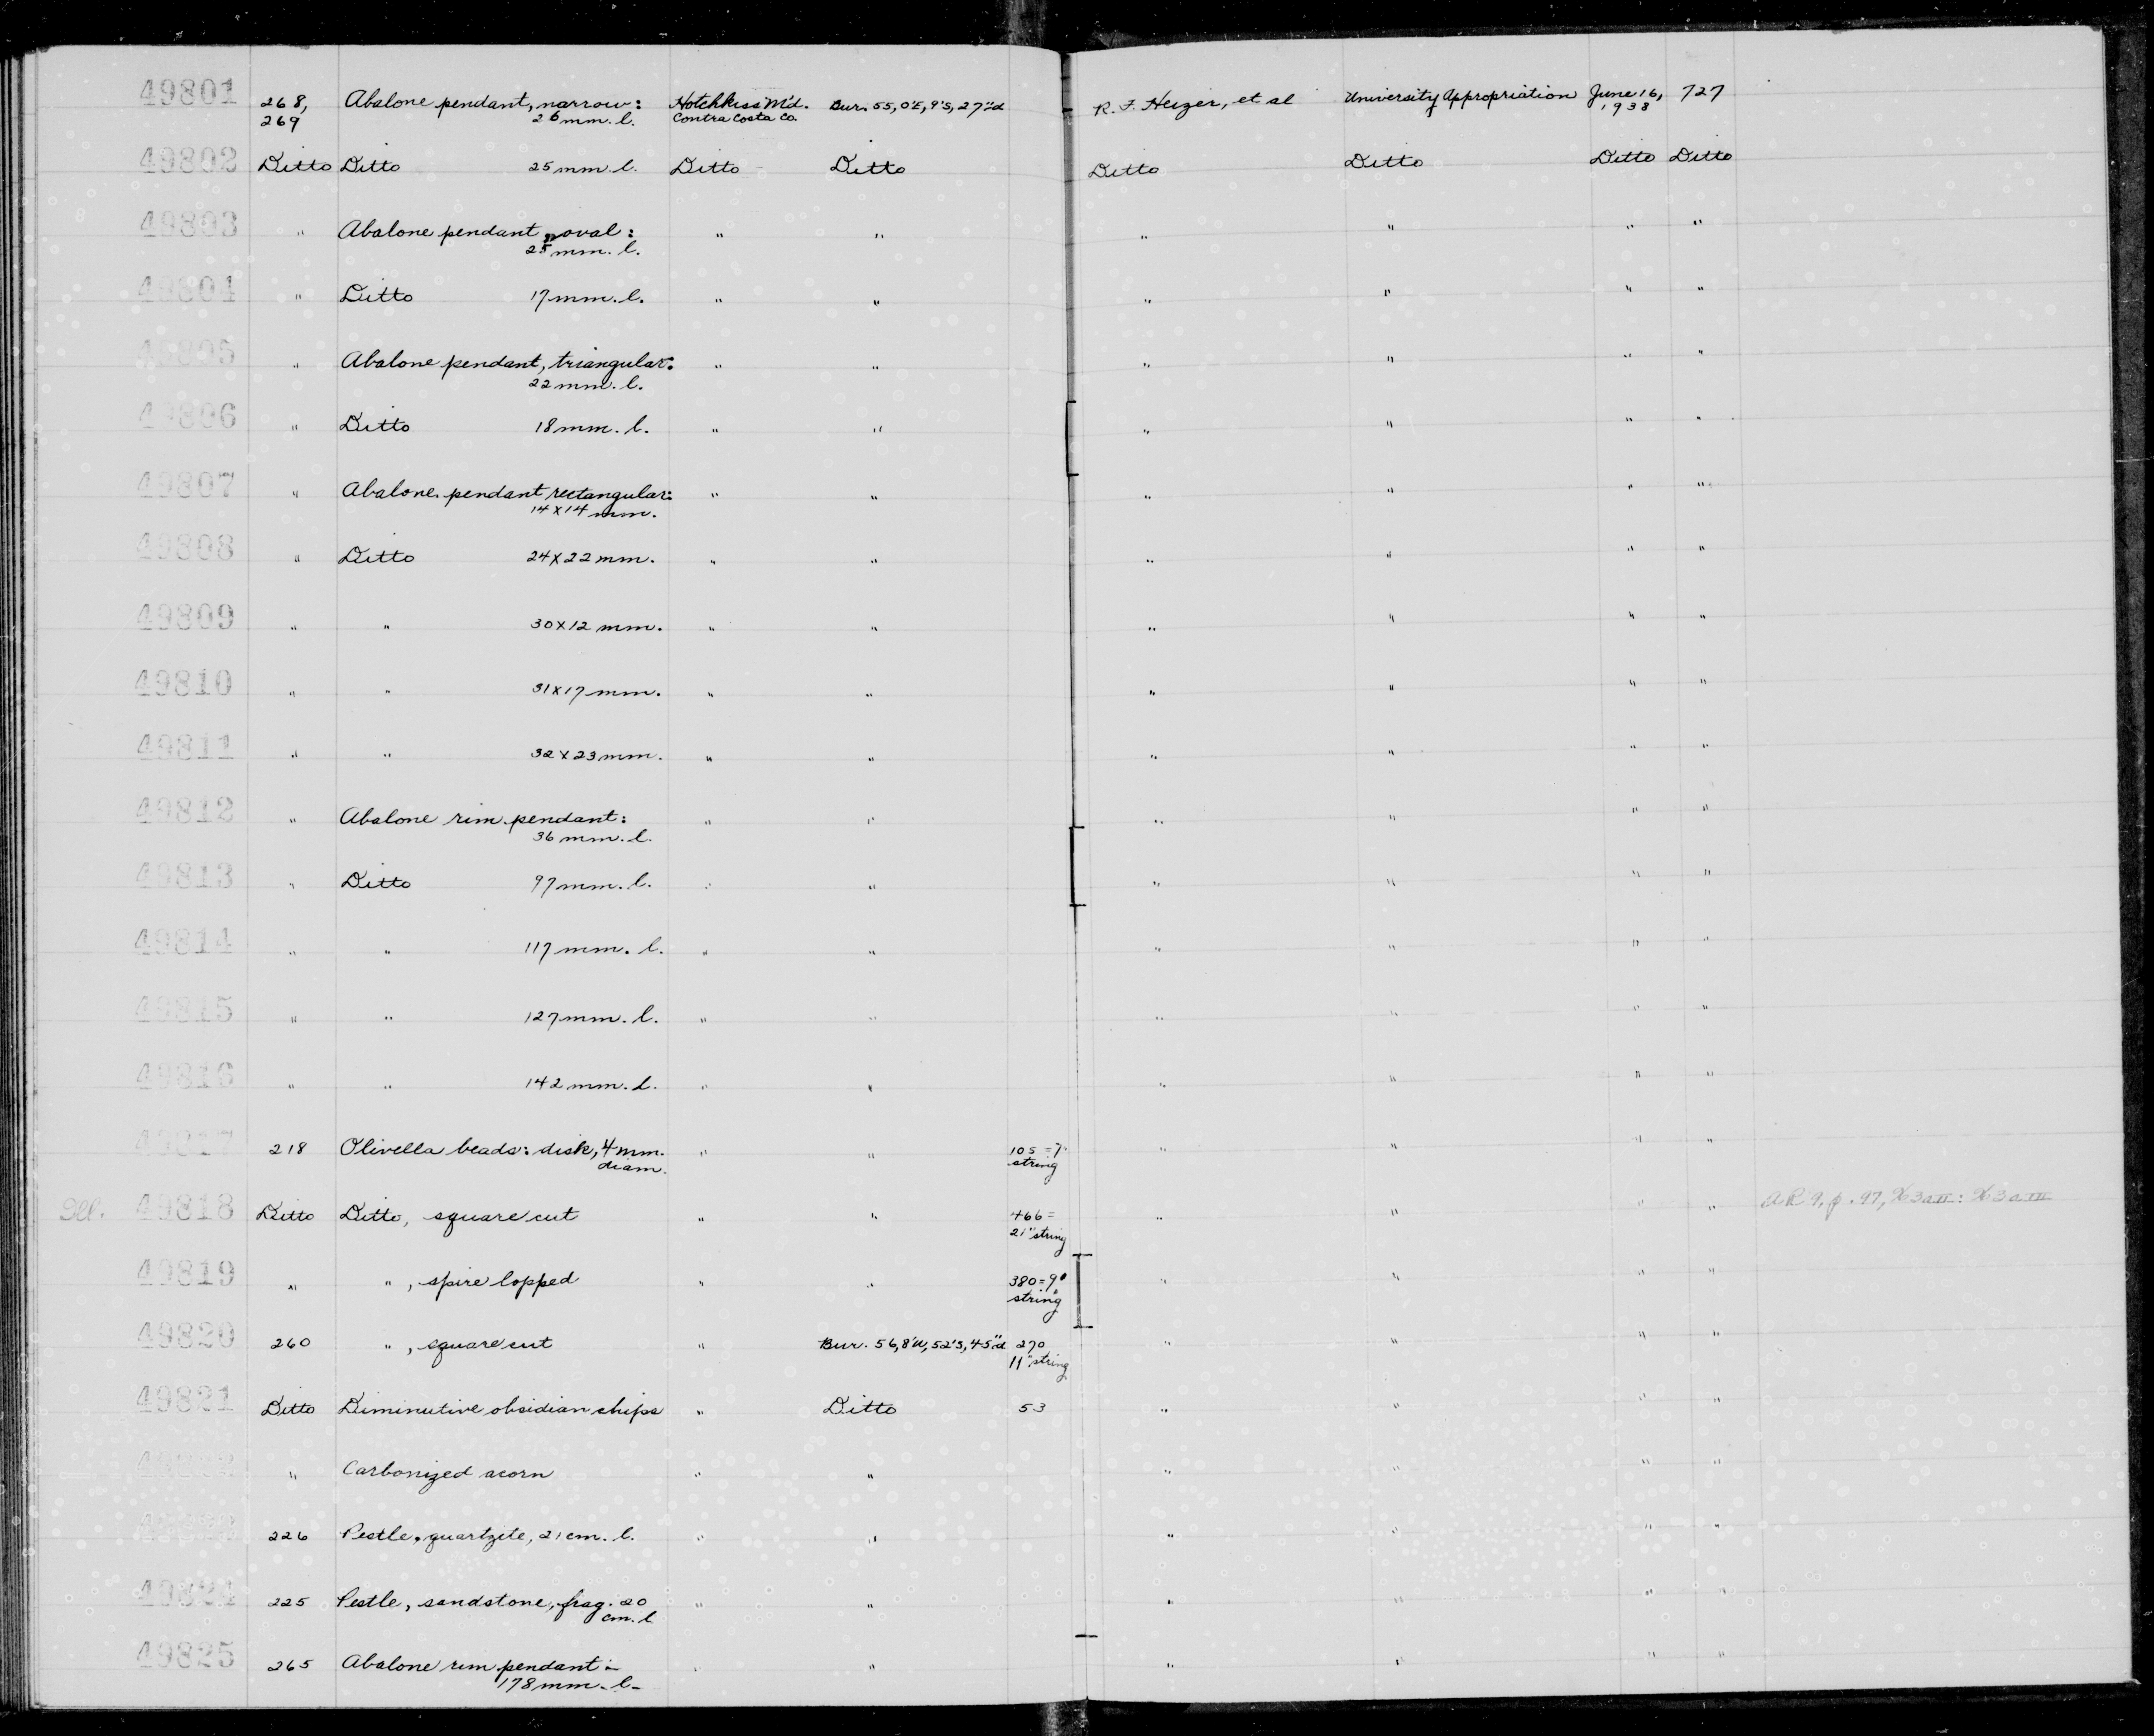 49801 268, Abalone pendant, narrow: Hotchkiss M'd. Bur. 55, 0'E, 9'S, 27"d R. F. Heizer, et al University Appropriation June 16, 727
269 26 mm. l. Contra Costa Co. 1938
49802 Ditto Ditto 25 mm. l. Ditto Ditto Ditto Ditto Ditto Ditto
49803 " Abalone pendant, oval: " " " " " "
25 mm. l.
49804 " Ditto 17 mm. l. " " " " " "
49805 " Abalone pendant, triangular: " " " " " "
22 mm. l.
49806 " Ditto 18 mm. l. " " " " " "
49807 " Abalone pendant rectangular: " " " " " "
14 x 14 mm.
49808 " Ditto 24 x 22 mm. " " " " " "
49809 " " 30 x 12 mm. " " " " " "
49810 " " 31 x 17 mm. " " " " " "
49811 " " 32 x 23 mm. " " " " " "
49812 " Abalone rim pendant: " " " " " "
36 mm. l.
49813 " Ditto 97 mm. l. " " " " " "
49814 " " 117 mm. l. " " " " " "
49815 " " 127 mm. l. " " " " " "
49816 " " 142 mm. l. " " " " " "
49817 218 Olivella beads: disk, 4 mm. " " 105 = 7" " " " "
diam. string
Ill. 49818 Ditto Ditto, square cut " " 466 = " " " " AR 9, p. 97,
21" string
49819 " ", spire lopped " " 380 = 9" " " " "
string
49820 260 ", square cut " Bur. 56, 8'W, 52'S, 45"d 270 " " " "
11" string
49821 Ditto Diminutive obsidian chips " Ditto 53 " " " "
49822 " Carbonized acorn " " " " " "
49823 226 Pestle, quartzite, 21 cm. l. " " " " " "
49824 225 Pestle, sandstone, frag. 20 " " " " " "
cm. l
49825 265 Abalone rim pendant:- " " " " " "
178 mm. l.